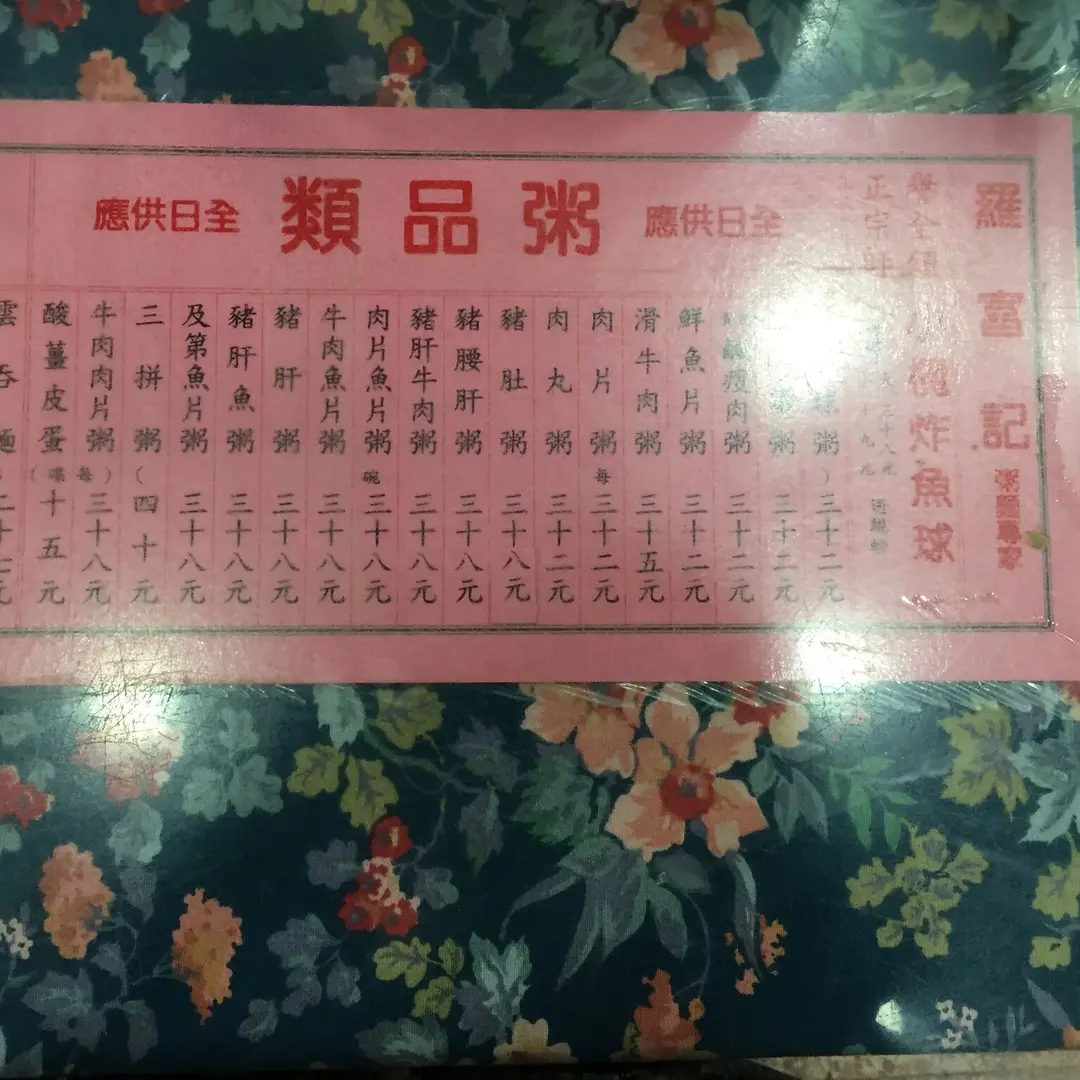 羅富記
粥麵專家
正宗
炸魚球
全日供應
粥品類
全日供應
三十二元
三十二元
瘦肉粥 三十二元
鮮魚片粥 三十二元
滑牛肉粥 三十五元
肉片粥 三十二元
肉丸粥 三十二元
豬肚粥 三十八元
豬腰肝粥 三十八元
豬肝牛肉粥 三十八元
肉片魚片粥 三十八元
牛肉魚片粥 三十八元
豬肝粥 三十八元
豬肝魚粥 三十八元
及第魚片粥 三十八元
三拼粥 四十元
牛肉肉片粥 三十八元
酸薑皮蛋 十五元
(每碗)
(每碟)
雲吞麵